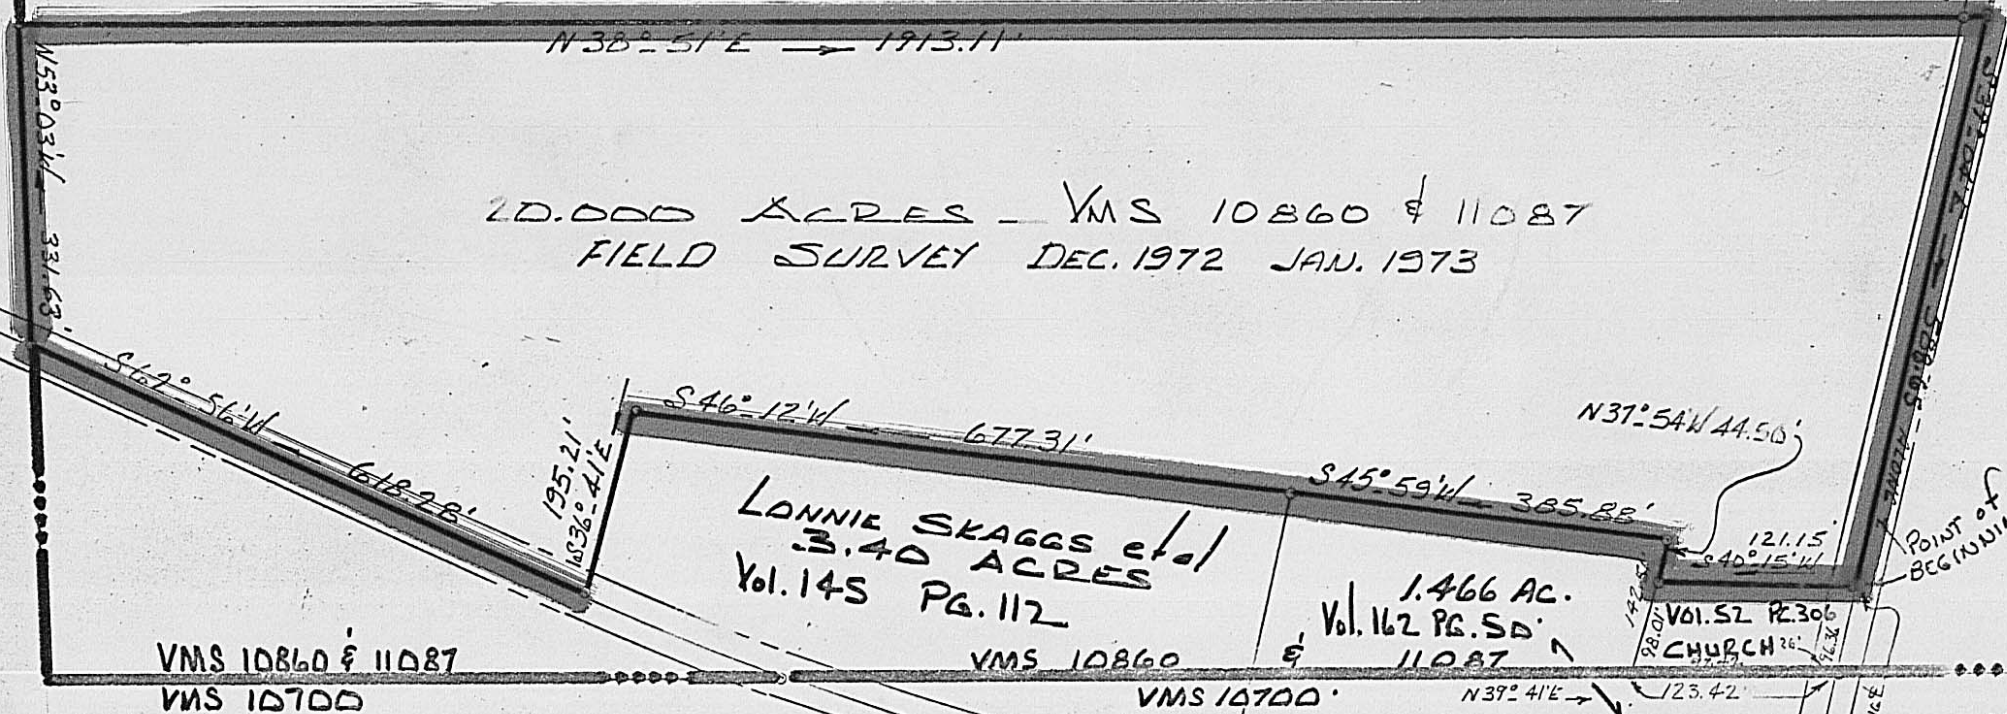 N38°-51'E → 1913.11'
N53°03'W - 331.63'
20.000 ACRES - VMS 10860 & 11087
FIELD SURVEY DEC. 1972 JAN. 1973
S67°-56'W - 618.28'
195.21'
S36°-41'E
S46°-12'W - 677.31'
S45°-59'W - 385.88'
N37°54'W 44.50'
121.15'
S40°-15'W
POINT OF
BEGINNIN
LONNIE SKAGGS et al
3.40 ACRES
Vol. 145 PG. 112
1.466 AC.
Vol. 162 PG. 50
98.01'
VOl. 52 PG. 306
CHURCH
26'
96.36
VMS 10860 & 11087
VMS 10860 & 11087
VMS 10700
VMS 10700
N39°41'E →
123.42'